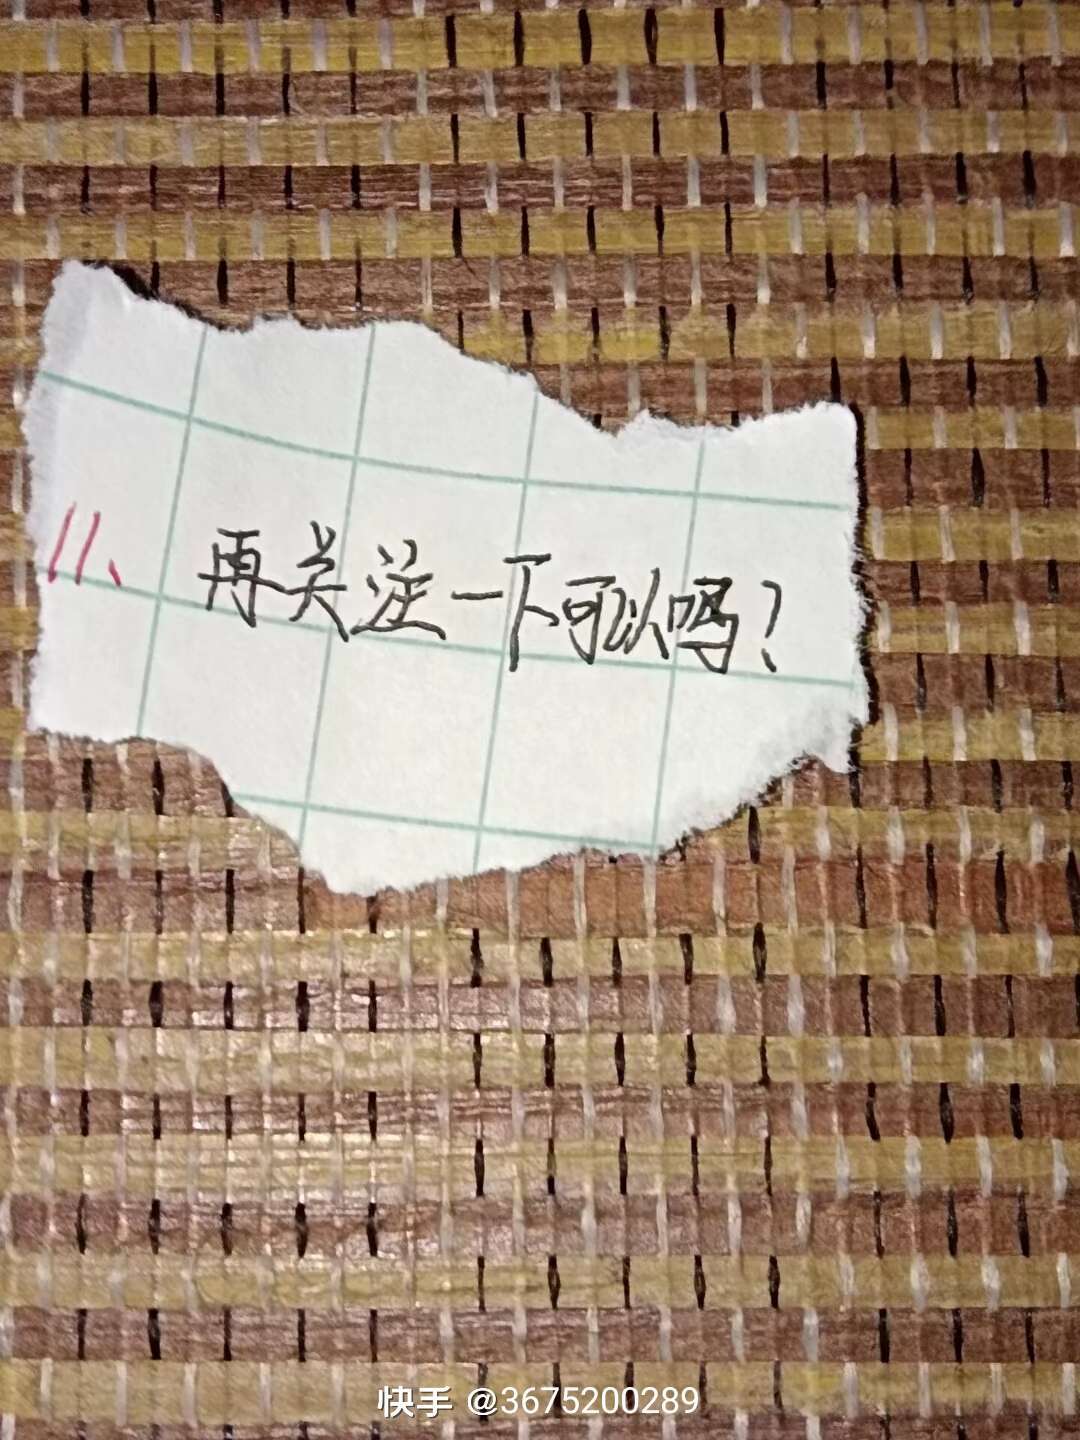 11、再关注一下可以吗?
快手 @3675200289